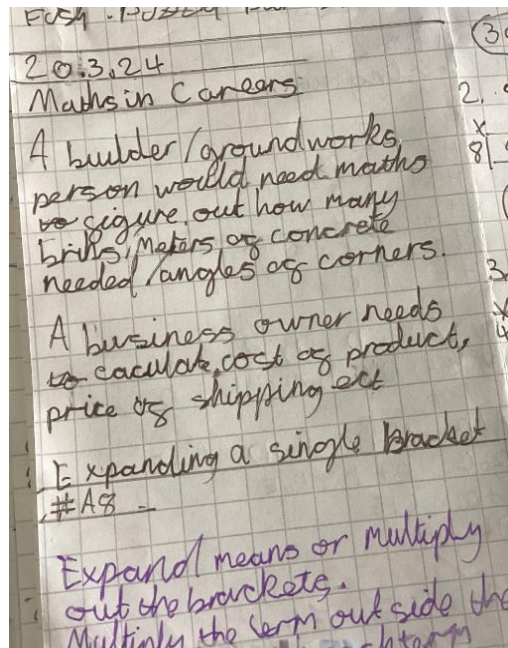 20.3.24
Maths in Careers
A builder/groundworks
person would need maths
to figure out how many
briks, Meters of concrete
needed/angles of corners.
A business owner needs
to caculate, cost of product,
price of shipping ect
Expanding a single bracket
#A8 -
Expand means or multiply
out the brackets.
Multiply the term out side the
term
3
2.
x
8
3.